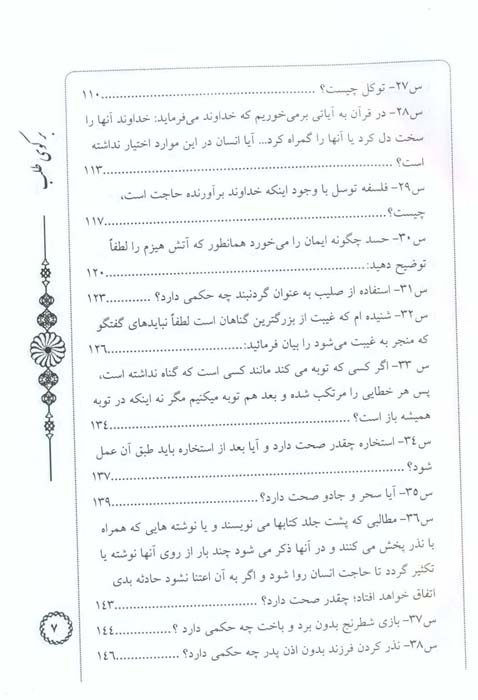 س۲۷- توکل چیست؟ ..........................................................۱۱۰
س۲۸- در قرآن به آیاتی برمی‌خوریم که خداوند می‌فرماید: خداوند آنها را
سخت دل کرد یا آنها را گمراه کرد... آیا انسان در این موارد اختیار نداشته
است؟ ..........................................................۱۱۳
س۲۹- فلسفه توسل با وجود اینکه خداوند برآورنده حاجت است،
چیست؟..........................................................۱۱۷
س۳۰- حسد چگونه ایمان را می‌خورد همانطور که آتش هیزم را لطفاً
توضیح دهید:..........................................................۱۲۰
س۳۱- استفاده از صلیب به عنوان گردنبند چه حکمی دارد؟ ............۱۲۳
س۳۲- شنیده ام که غیبت از بزرگترین گناهان است لطفاً نبایدهای گفتگو
که منجر به غیبت می‌شود را بیان فرمائید:..............................۱۲۶
س ۳۳- اگر کسی که توبه می کند مانند کسی است که گناه نداشته است،
پس هر خطایی را مرتکب شده و بعد هم توبه میکنیم مگر نه اینکه در توبه
همیشه باز است؟ ..........................................................۱۳۴
س۳۴- استخاره چقدر صحت دارد و آیا بعد از استخاره باید طبق آن عمل
شود؟ ..........................................................۱۳۷
س۳۵- آیا سحر و جادو صحت دارد؟..............................۱۳۹
س۳۶- مطالبی که پشت جلد کتابها می نویسند و یا نوشته هایی که همراه
با نذر پخش می کنند و در آنها ذکر می شود چند بار از روی آنها نوشته یا
تکثیر گردد تا حاجت انسان روا شود و اگر به آن اعتنا نشود حادثه بدی
اتفاق خواهد افتاد؛ چقدر صحت دارد؟ ..............................۱۴۳
س۳۷- بازی شطرنج بدون برد و باخت چه حکمی دارد ؟..............۱۴۴
س۳۸- نذر کردن فرزند بدون اذن پدر چه حکمی دارد؟ ..............۱۴۶
بر کوی طلب
۷